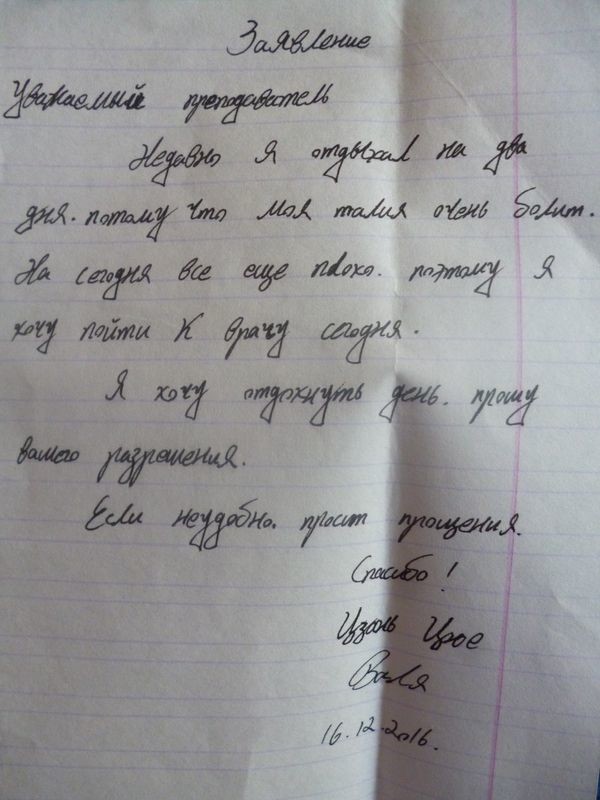 Заявление
Уважаемый преподаватель
Недавно я отдыхал на два
дня. потому что моя талия очень болит.
На сегодня все еще плохо. поэтому я
хочу пойти к врачу сегодня.
Я хочу отдохнуть день. прошу
вашего разрешения.
Если неудобно. просит прощения.
Спасибо!
Цзонь Цюе
Валя
16.12.2016.